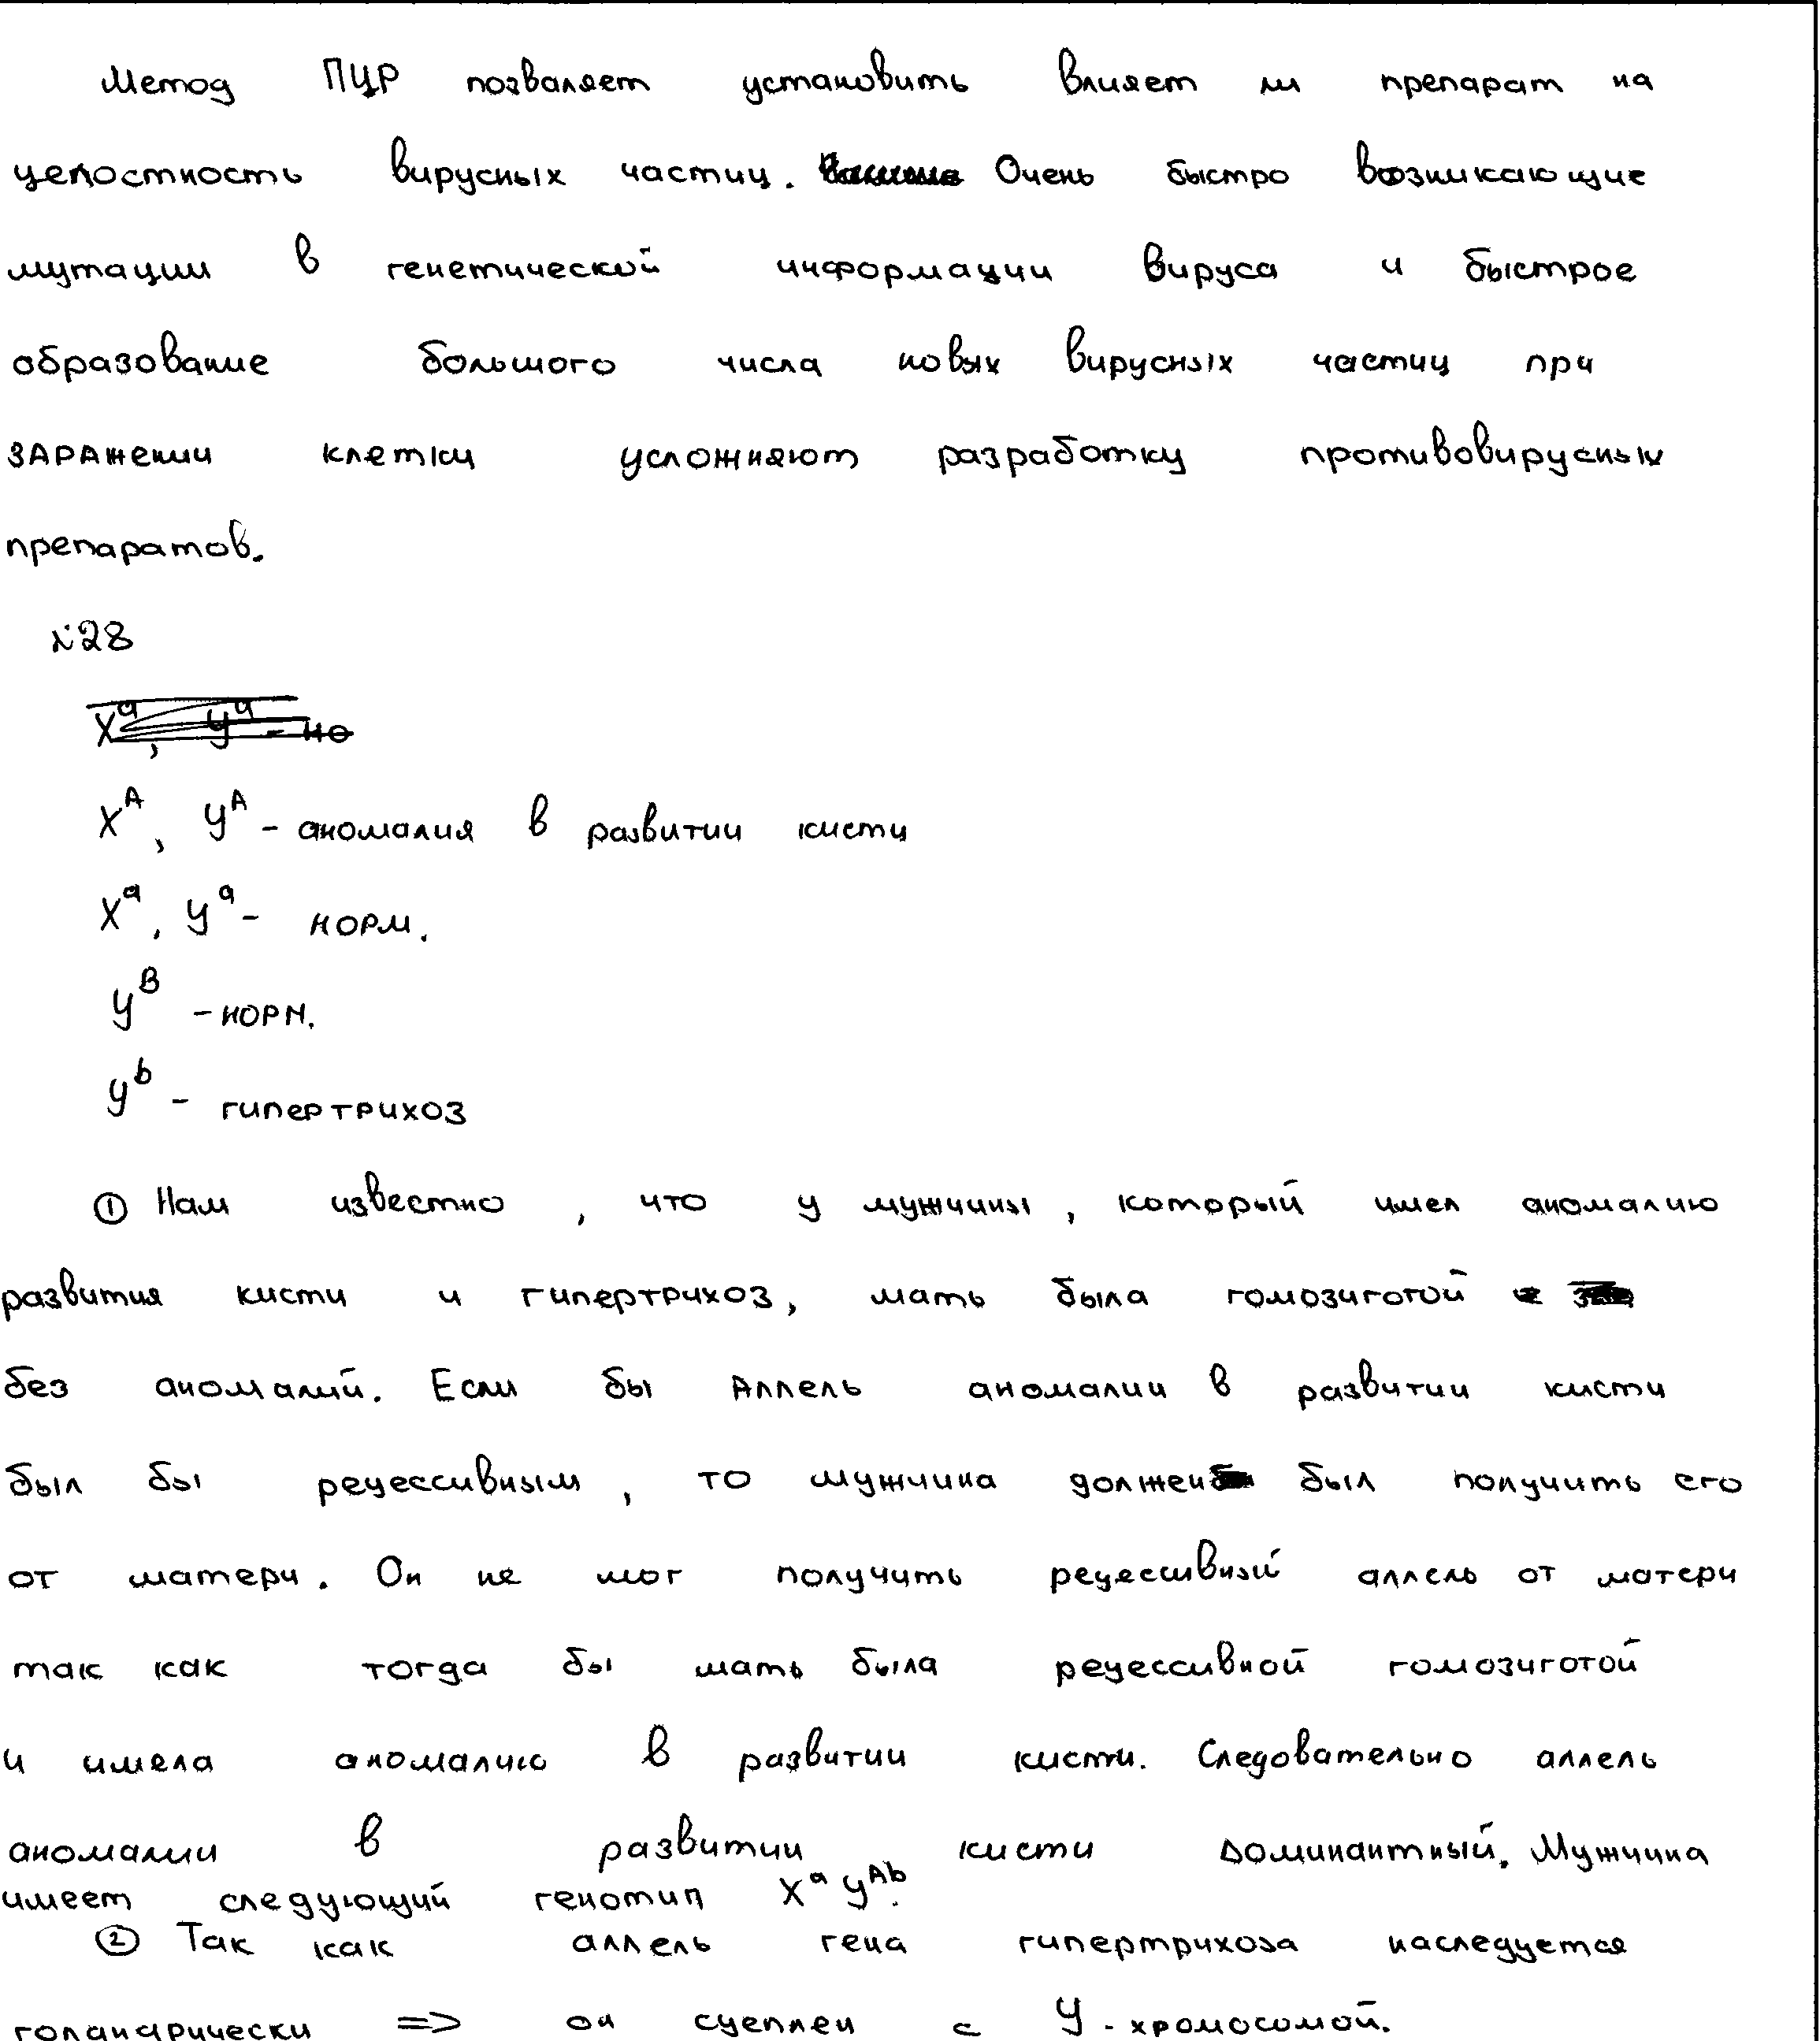 Метод ПЦР позваляет установить влияет ли препарат на
целостность вирусных частиц. Очень быстро возникающие
мутации в генетической информации вируса и быстрое
образование большого числа новых вирусных частиц при
заражении клетки усложняют разработку противовирусных
препаратов.
№28
X^a, Y^a - но
X^A, Y^A - аномалия в развитии кисти
X^a, Y^a - норм.
Y^B - норм.
Y^b - гипертрихоз
① Нам известно, что у мужчины, который имел аномалию
развития кисти и гипертрихоз, мать была гомозиготой
без аномалий. Если бы аллель аномалии в развитии кисти
был бы рецессивным, то мужчина должен был получить его
от матери. Он не мог получить рецессивный аллель от матери
так как тогда бы мать была рецессивной гомозиготой
и имела аномалию в развитии кисти. Следовательно аллель
аномалии в развитии кисти доминантный. Мужчина
имеет следующий генотип X^a Y^Ab.
② Так как аллель гена гипертрихоза наследуется
голандрически => он сцеплен с Y-хромосомой.